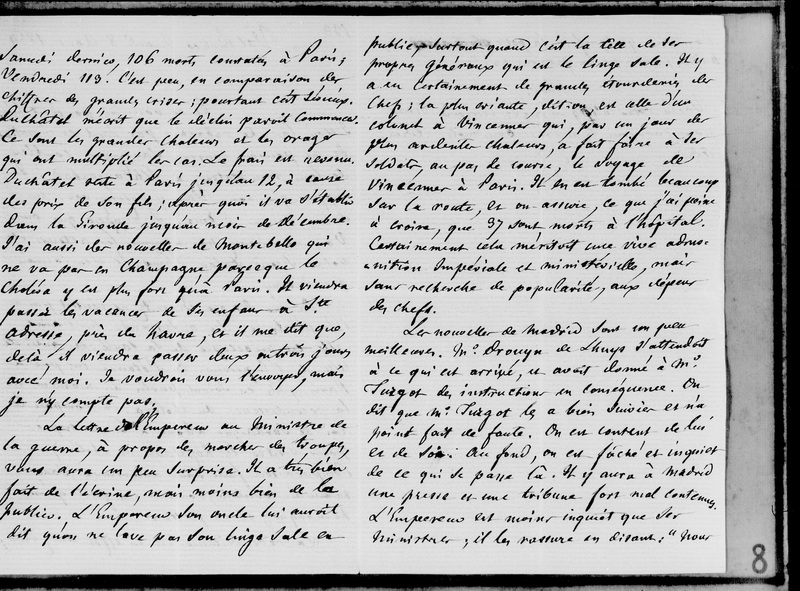 Samedi dernier, 106 morts constatés à Paris;
Vendredi 113. C'est peu, en comparaison des
chiffres des grandes crises; pourtant c'est sérieux.
Duchâtel m'écrit que le déclin paroit commencer.
Ce sont les grandes chaleurs et les orages
qui ont multiplié les cas. Le frais est revenu.
Duchâtel reste à Paris jusqu'au 12, à cause
des prix de son fils; après quoi il va s'établir
dans la Gironde jusqu'au mois de décembre.
J'ai aussi des nouvelles de Montebello qui
ne va pas en Champagne parceque le
Choléra y est plus fort qu'à Paris. Il viendra
passer les vacances de ses enfans à Ste
adresse, près du havre, et il me dit que,
delà il viendra passer deux ou trois jours
avec moi. Je voudrois vous l'envoyer, mais
je n'y compte pas.
La lettre de l'Empereur au Ministre de
la guerre, à propos des marches des troupes,
vous aura un peu surprise. Il a très bien
fait de l'écrire, mais moins bien de la
publier. L'Empereur son oncle lui auroit
dit qu'on ne lave pas son linge sale en
public, surtout quand c'est la tête de ses
propres généraux qui est le linge sale. Il y
a eu certainement de grandes étourderies des
chefs; la plus criante, dit-on, est celle d'un
colonel à Vincennes qui, par un jour des
plus ardentes chaleurs, a fait faire à ses
soldats, au pas de course, le voyage de
Vincennes à Paris. Il en est tombé beaucoup
sur la route, et on assure, ce que j'ai peine
à croire, que 37 sont morts à l'hôpital.
Certainement cela méritoit une vive admo-
-nition Impériale et ministérielle, mais
sans recherche de popularité, aux dépens
des chefs.
Les nouvelles de Madrid sont un peu
meilleures. Mr. Drouyn de Lhuys s'attendoit
à ce qui est arrivé, et avoit donné à Mr.
Turgot des instructions en conséquence. On
dit que Mr. Turgot les a bien suivies et n'a
point fait de faute. On est content de lui
et de soi. Au fond, on est fâché et inquiet
de ce qui se passe là. Il y aura à Madrid
une presse et une tribune fort mal contenues.
L'Empereur est moins inquiet que ses
Ministres; il les rassure en disant: "Nous
8